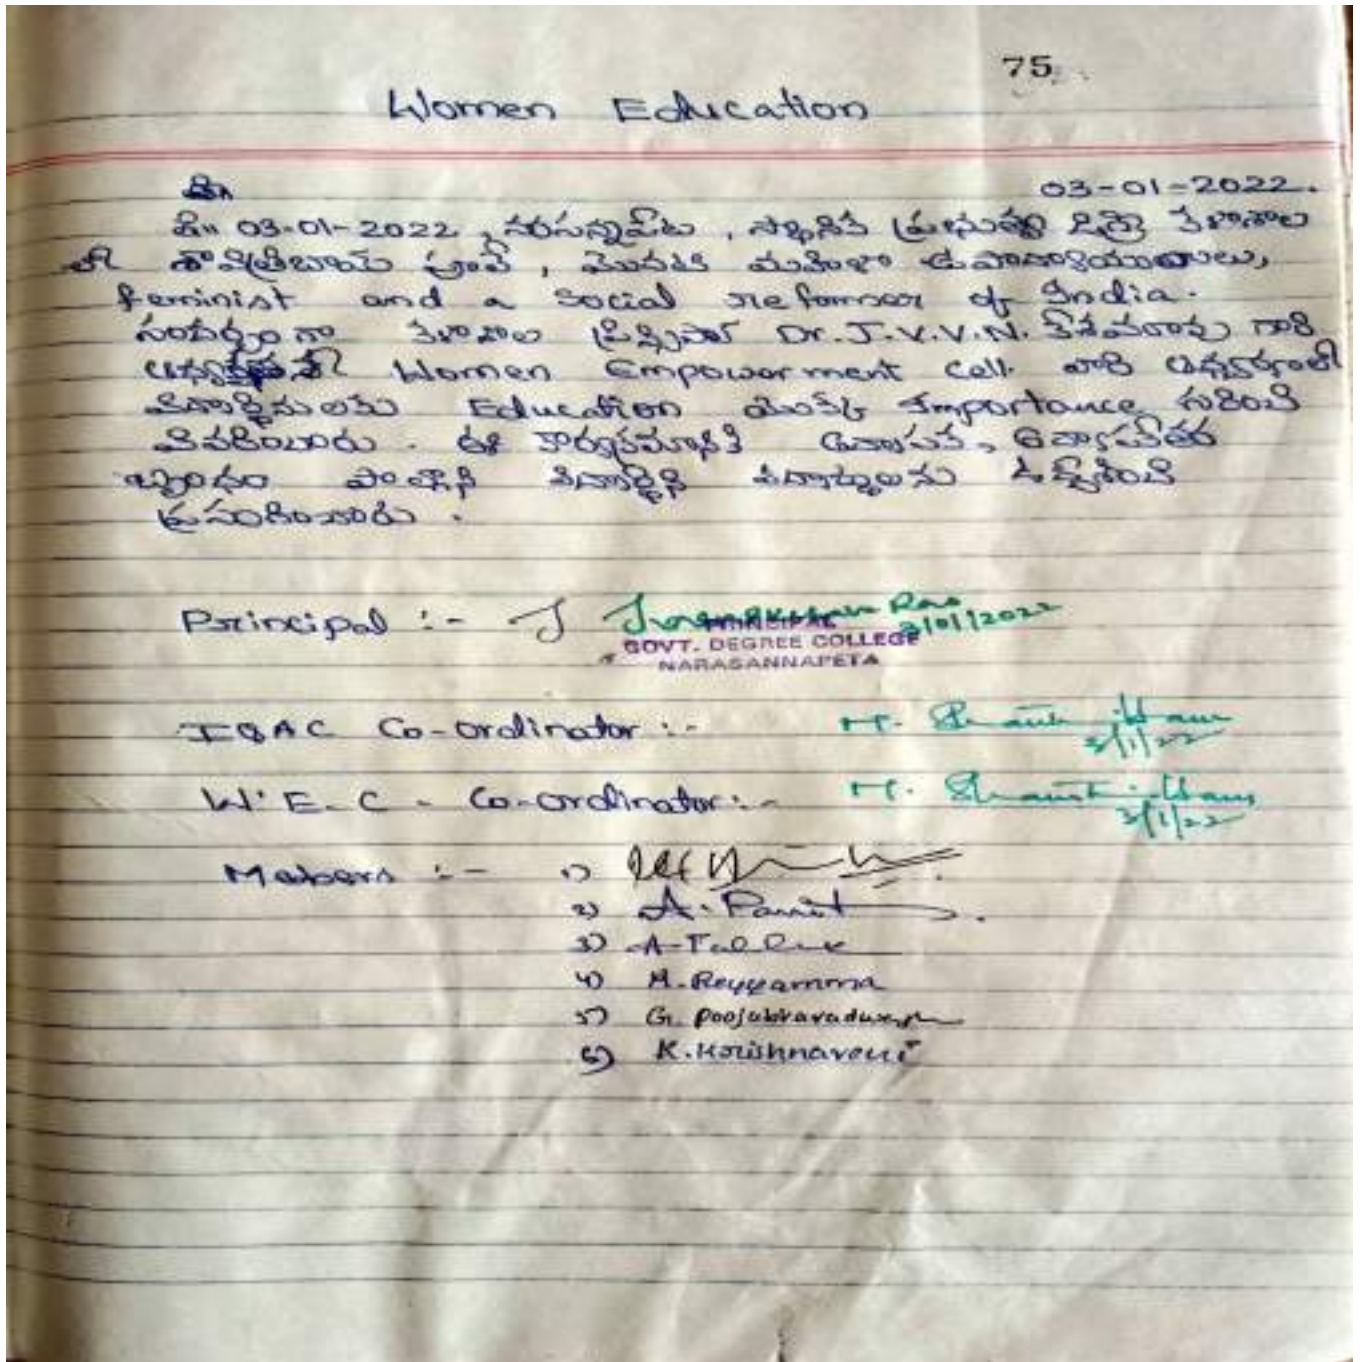 75
Women Education
03-01-2022.
ది॥ 03-01-2022, నరసన్నపేట, స్థానిక ప్రభుత్వ డిగ్రీ కళాశాల
లో సావిత్రిబాయ్ పూలే, మొదటి మహిళా ఉపాధ్యాయురాలు,
feminist and a social reformer of India.
సందర్భంగా కళాశాల ప్రిన్సిపాల్ Dr. J.V.V.N. కేశవరావు గారి
Women Empowerment Cell వారి ఆధ్వర్యంలో
విద్యార్థినులకు Education యొక్క Importance గురించి
వివరించారు. ఈ కార్యక్రమానికి అధ్యాపక, అధ్యాపకేతర
బృందం పాల్గొని విద్యార్థిని విద్యార్థులను ఉద్దేశించి
ప్రసంగించారు.
Principal :- J
3/01/2022
PRINCIPAL
GOVT. DEGREE COLLEGE
NARASANNAPETA
IQAC Co-ordinator :-
3/1/22
W.E.C - Co-ordinator :-
3/1/22
Mebers :- 1)
2) A.
3) A-
4) M. Reyyamma
5) G.
6) K. Krishnaveni